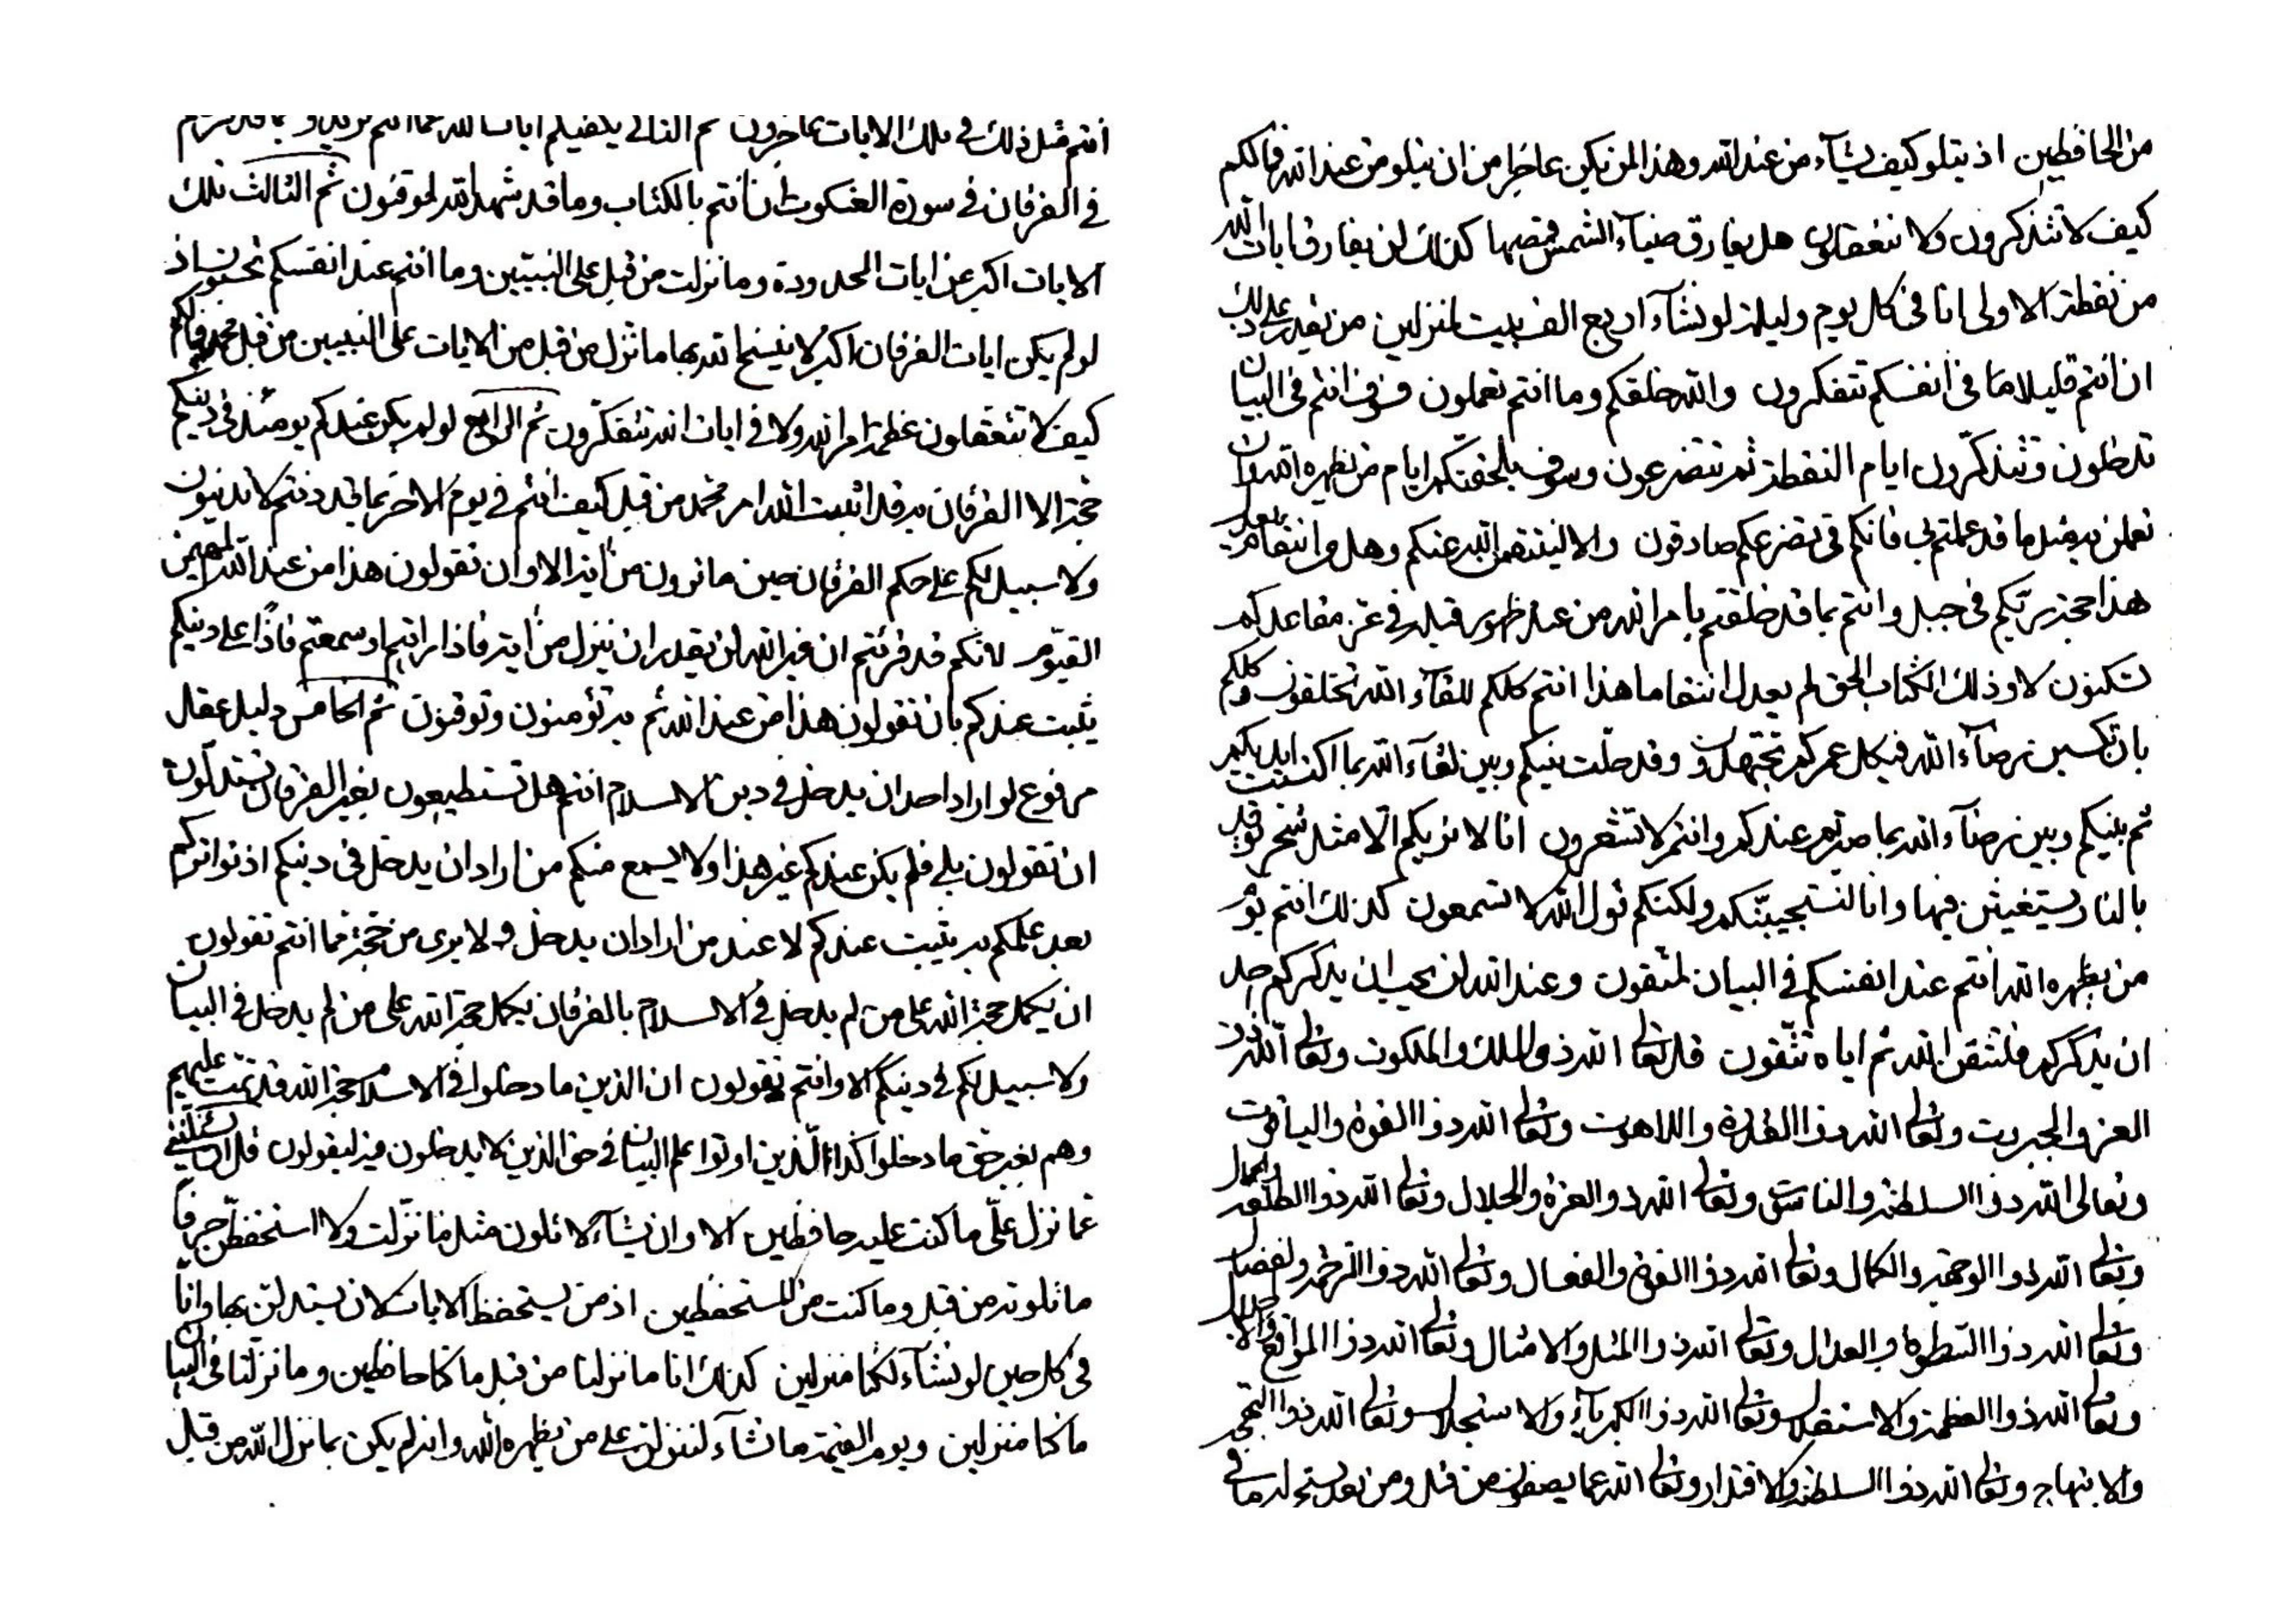 انتم قبل ذلك في تلك الايات عاجزون ثم الثاني يكفيكم ايات الله عما انتم تريدون بما قد نزل
في الفرقان في سورة العنكبوت ان انتم بالكتاب وما قد شهد الله لموقنون ثم الثالث تلك
الايات اكبر عن ايات المحدودة وما نزلت من قبل على النبيين وما انتم عند انفسكم تحبون اذ
لو لم يكن ايات الفرقان اكبر لا ينسخ الله بها ما نزل من قبل من الايات على النبيين من قبل محمد فما لكم
كيف لا تتعقلون عظمة امر الله ولا في ايات الله تتفكرون ثم الرابع لو لم يكن عندكم يومئذ في دينكم
حجة الا الفرقان به قد اثبت الله امر محمد من قبل كيف انتم في يوم الاخر بما قد دنتم لا تدينون
ولا سبيل لكم على حكم الفرقان حين ما ترون من اية الا وان تقولون هذا من عند الله المهيمن
القيوم لانكم قد قرئتم ان غير الله لن يقدر ان ينزل من اية فاذا رايتم او سمعتم فاذا على دينكم
يثبت عندكم بان تقولون هذا من عند الله ثم به تؤمنون وتوقنون ثم الخامس دليل عقل
مرفوع لو اراد احد ان يدخل في دين الاسلام انتم هل تستطيعون بغير الفرقان تستدلون
ان تقولون بلى فلم يكن عندكم غير هذا ولا يسمع منكم من اراد ان يدخل في دينكم اذ تواتركم
بعد علمكم به يثبت عندكم لا عند من اراد ان يدخل ولا يرى من حجة فما انتم تقولون
ان يكمل حجة الله على من لم يدخل في الاسلام بالفرقان يكمل حجة الله على من لم يدخل في البيان
ولا سبيل لكم في دينكم الا وانتم تقولون ان الذين ما دخلوا في الاسلام حجة الله قد تمت عليهم
وهم بغير حق ما دخلوا كذا الذين اوتوا علم البيان في حق الذين لا يدخلون فيه ليقولون قل ان تسئلنني
عما نزل علي ما كنت عليه حافظين الا وان نشآء لاتلون مثل ما نزلت ولا استحفظن حرفا
ما تلوته من قبل وما كنت من المستحفظين اذ من يستحفظ الايات لان يستدلن بها وانا
في كل حين لو نشآء لكنا منزلين كذلك انا ما نزلنا من قبل ما كنا حافظين وما نزلنا في البيان
ما كنا منزلين ويوم القيمة ما نشآء لننزلن على من يظهره الله وانه لم يكن بما نزل الله من قبل
من الحافظين اذ يتلو كيف يشآء من عند الله وهذا لم يكن عاجزا من ان يتلو من عند الله فما لكم
كيف لا تتذكرون ولا تتعقلون هل يفارق ضيآء الشمس قمصها كذلك لن يفارق ايات الله
من نقطة الاولى انا في كل يوم وليلة لو نشآء اربع الف بيت لمنزلين من يقدر على ذلك
ان انتم قليلا ما في انفسكم تتفكرون والله خلقكم وما انتم تعملون فسوف انتم في البيان
تدخلون وتتذكرون ايام النقطة ثم تتضرعون وسوف يلحقنكم ايام من يظهره الله ان
تعملن به مثل ما قد عملتم بي فانكم في تضرعكم صادقون والا لينتقمن الله عنكم وهل من انتقام بعد
هذا حجة ربكم في جبل وانتم بما قد خلقتم بامر الله من عند ظهور قبله في عز مقاعدكم
تسكنون لا وذلك الكتاب الحق لم يعدل انتقاما هذا انتم كلكم للقآء الله تخلقون وكلكم
بان تكسبن رضآء الله في كل عمركم تجتهدون وقد حلت بينكم وبين لقآء الله بما اكتسبت ايديكم
ثم بينكم وبين رضآء الله بما صبرتم عندكم وانتم لا تشعرون انا لا نريكم الا مثل شجر توقد
بالنار ويستغيثن فيها وانا لنستجيبنكم ولكنكم قول الله لا تسمعون كذلك انتم يوم
من يظهره الله انتم عند انفسكم في البيان لمتقون وعند الله لن يحب ان يذكركم احد
ان يذكركم فلتتقن الله ثم اياه تتقون قل تعالى الله ذو الملك والملكوت وتعالى الله ذو
العز والجبروت وتعالى الله ذو القدرة واللاهوت وتعالى الله ذو القوة والياقوت
وتعالى الله ذو السلطنة والناسوت وتعالى الله ذو العزة والجلال وتعالى الله ذو الطلعة والجمال
وتعالى الله ذو الوجهة والكمال وتعالى الله ذو القوة والفعال وتعالى الله ذو الرحمة والفضال
وتعالى الله ذو السطوة والعدال وتعالى الله ذو المثل والامثال وتعالى الله ذو المواقع والاجلال
وتعالى الله ذو العظمة والاستقلال وتعالى الله ذو الكبريآء والاستجلال وتعالى الله ذو
والابتهاج وتعالى الله ذو السلطنة والاقتدار وتعالى الله عما يصفون من قبل ومن بعد يسبح له ما في